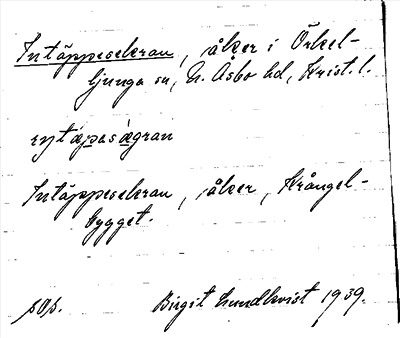 Intäppesekran, åker i Örkel-
ljunga sn, N. Åsbo hd, Krist. l.
Intäppesekran, åker, Krångel-
bygget.
sOs. Birgit Lundkvist 1939.